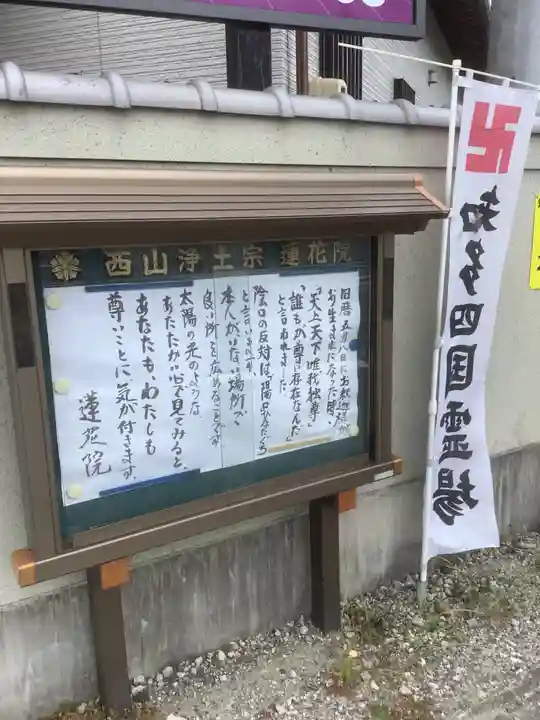 西山浄土宗 蓮花院
旧暦五月八日にお釈迦様が
お生まれになった時、
「天上天下唯我独尊」
「誰もが尊い存在なんだ」
と言われました。
陰口の反対は、陽口
と言いますが
本人がいない場所で
良い所を広めることです
太陽の光のような
あたたかい心で見てみると、
あなたも、わたしも
尊いことに気が付きます。
蓮花院
卍
知多四国霊場